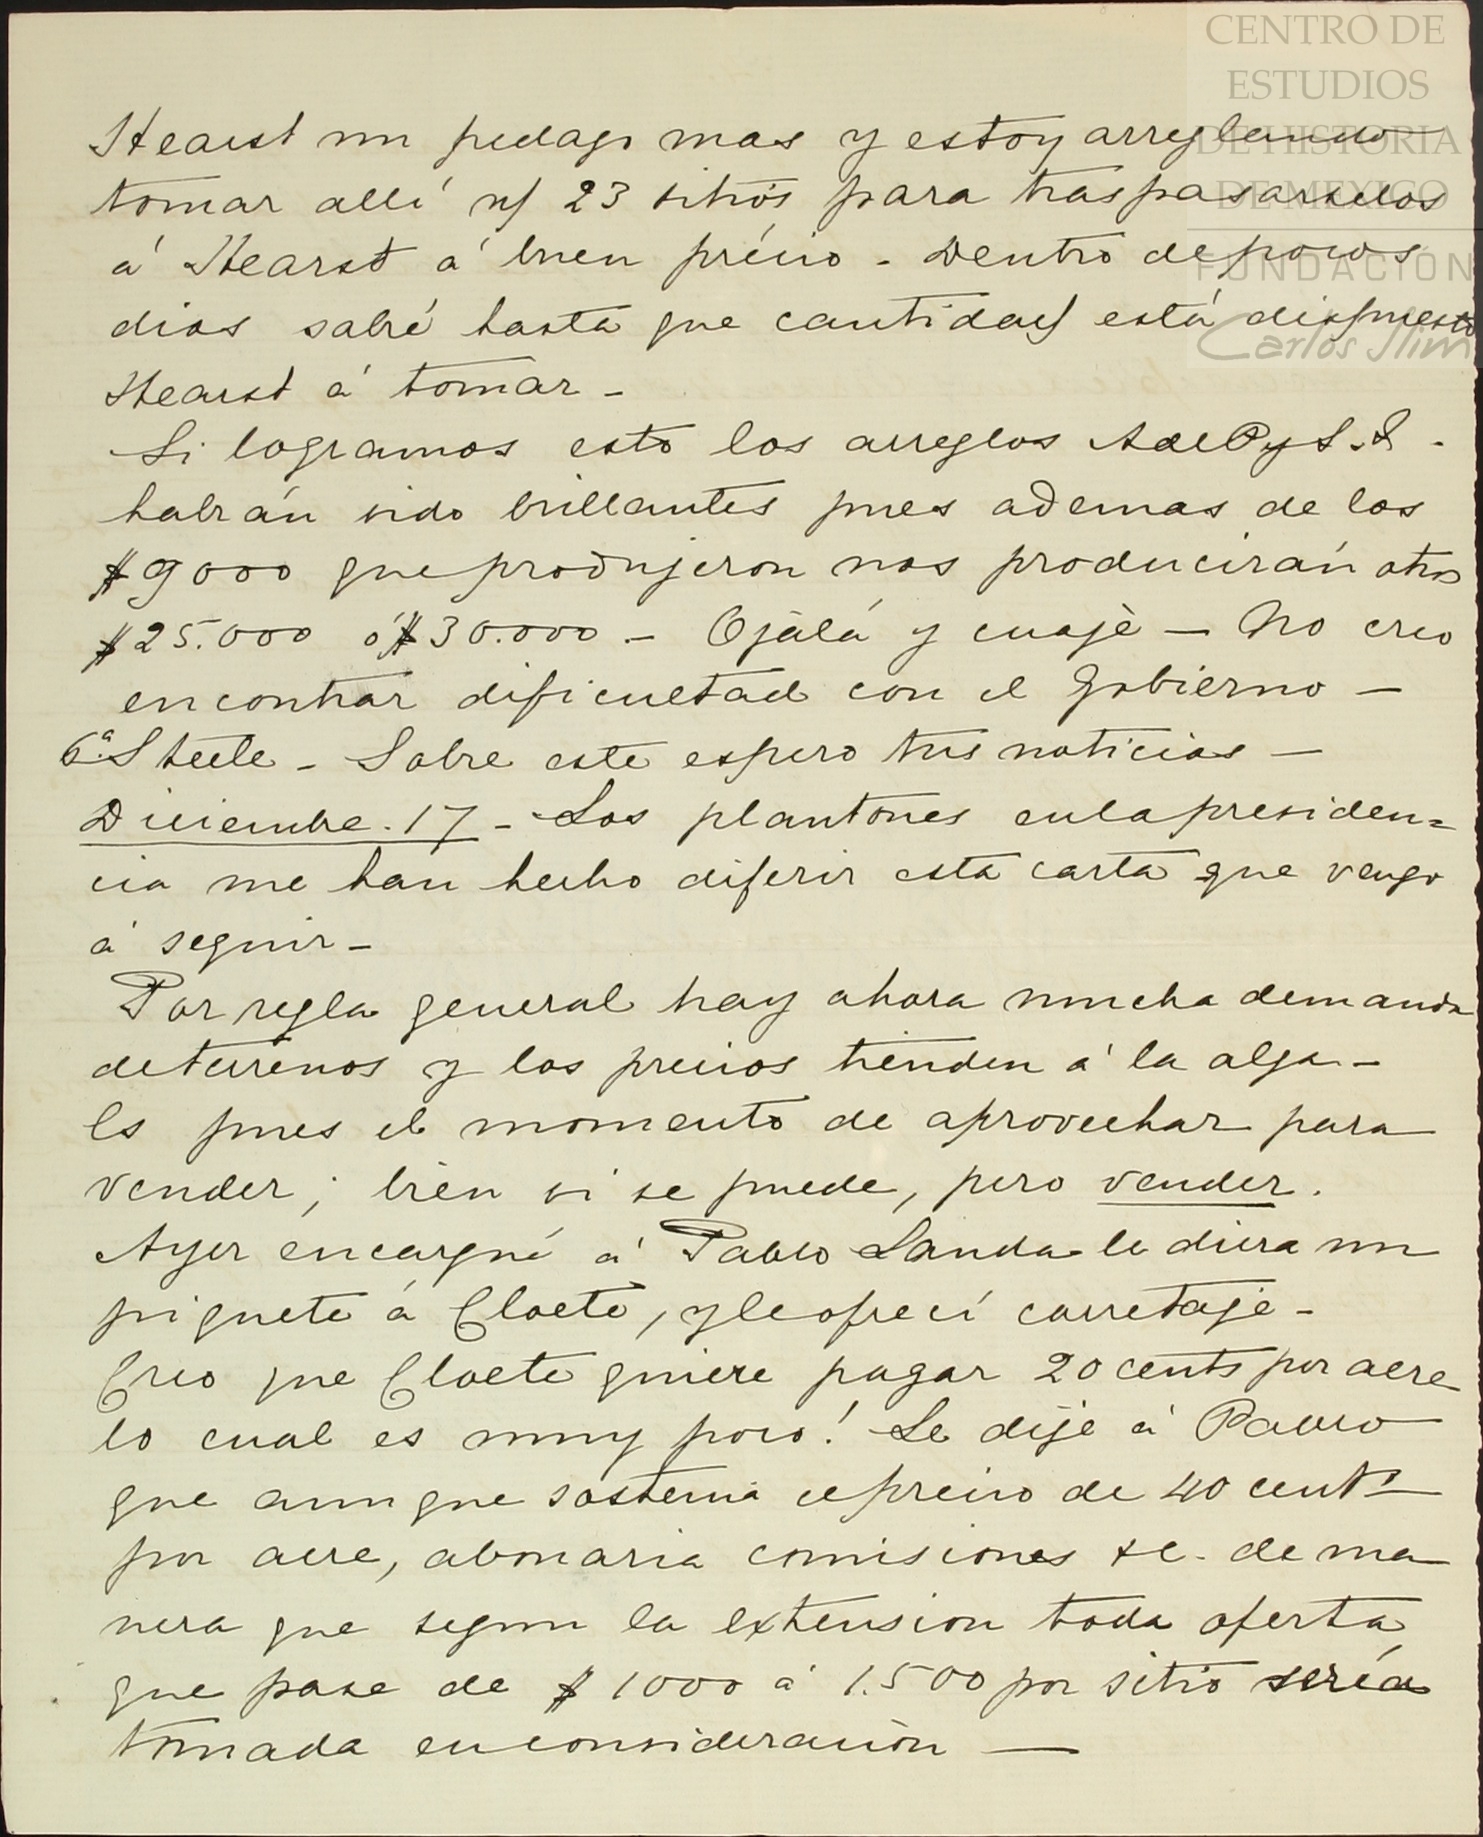 CENTRO DE
ESTUDIOS
DE HISTORIA
DE MEXICO
FUNDACION
Carlos Slim
Hearst un pedazo mas y estoy arreglando
tomar allí 23 sitios para traspasarselos
á Hearst á buen précio - Dentro de pocos
dias sabré hasta que cantidad está dispuesto
Hearst á tomar -
Si logramos esto los arreglos A de P y S. S -
habrán sido brillantes pues ademas de los
$9000 que produjeron nos producirán otros
$25.000 ó $30.000 - Ojalá y cuaje - No creo
encontrar dificultad con el Gobierno -
6ª Steele - Sobre este espero tus noticias -
Diciembre. 17 - Los plantones en la presiden=
cia me han hecho diferir esta carta que vengo
á seguir -
Por regla general hay ahora mucha demanda
de terrenos y los precios tienden á la alza -
Es pues el momento de aprovechar para
vender; bien si se puede, pero vender.
Ayer encargué á Pablo Landa le diera un
piquete á Cloete, y le ofrecí corretaje -
Creo que Cloete quiere pagar 20 cents por acre
lo cual es muy poco! Le dije á Pablo
que aunque sostenia el precio de 40 cents
por acre, abonaria comisiones &c. de ma
nera que segun la extension toda oferta
que pase de $1000 á 1.500 por sitio sería
tomada en consideración -